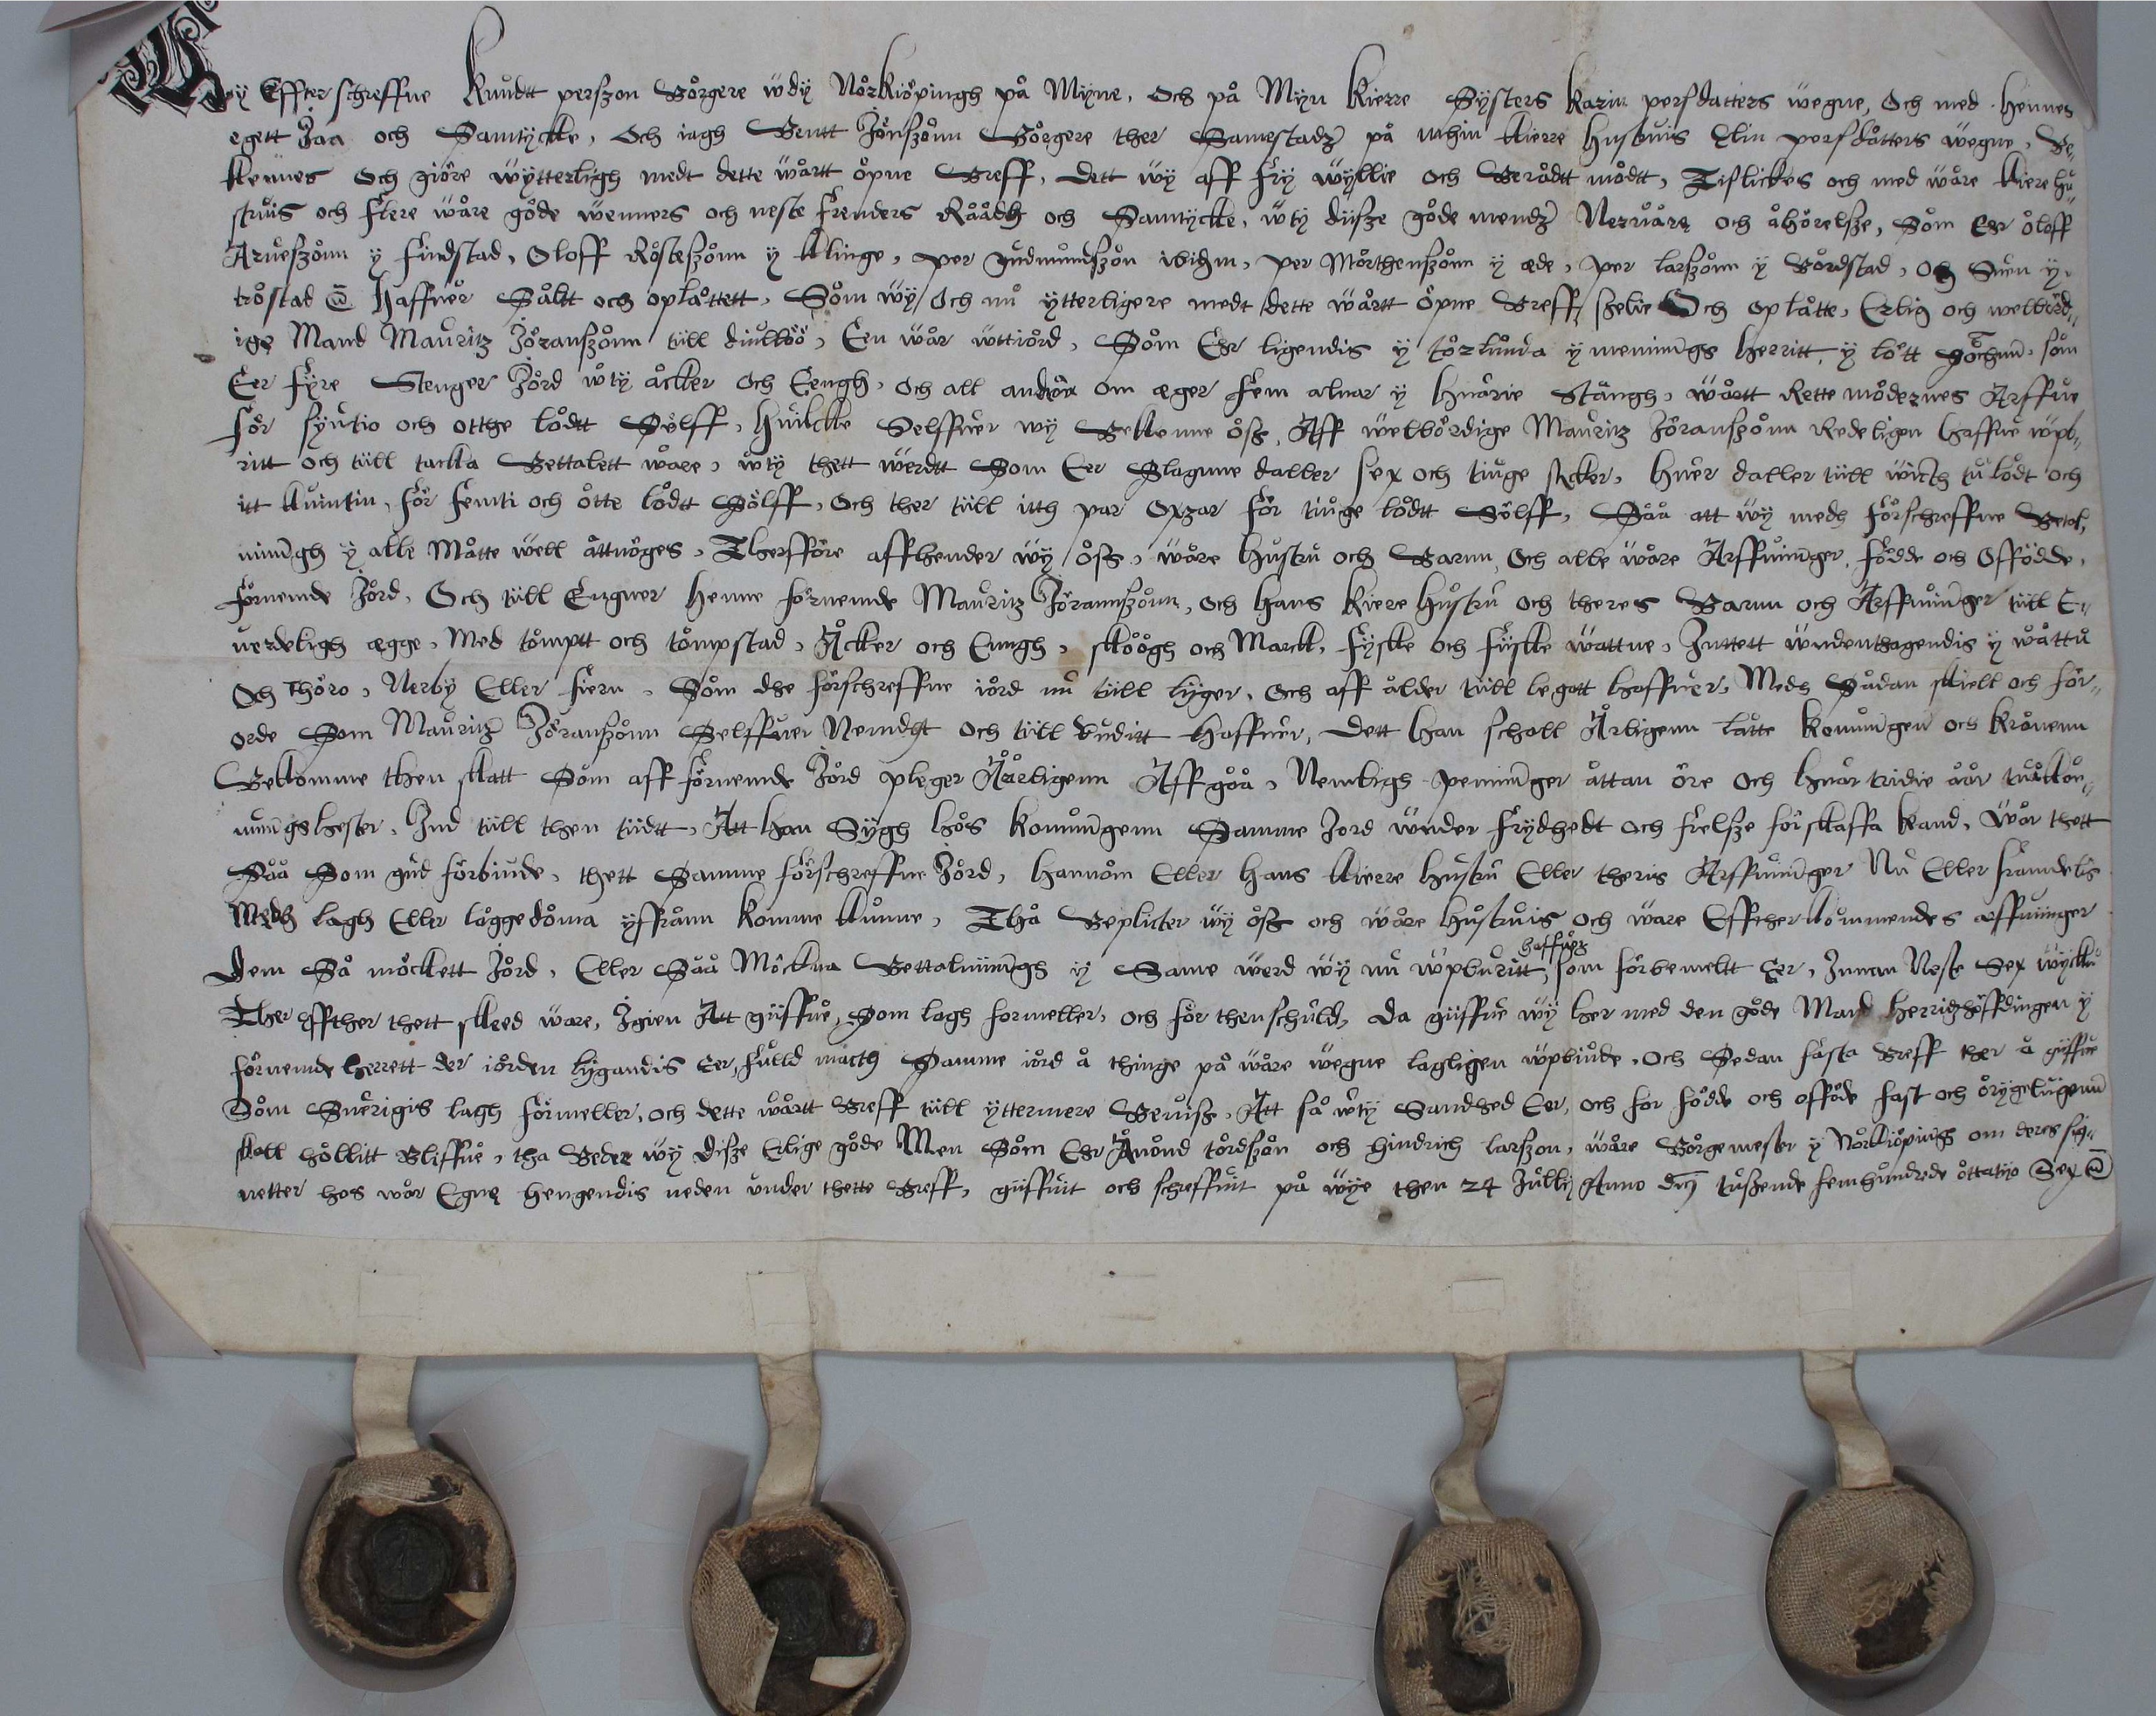 Wy Effter schreffne Knudtt perszon Borgere wdy Nörkiöpingh på Myne, Och på Myn Kierre Systers karin persdatters wegne, Och med hennes
egett Jaa och Samtycke, Och iagh Bentt Jönszönn Borgere ther Samestadz på mhin kierre hustruis Elin persdåtters wegne, Be„
kennes Och giöre wytterligh medt dette wårtt öpne Breff, Dett wy aff fry wyllie och Berådtt mådtt, Tislickes och med wåre kiere hu„
struis och flere wåre göde wenners och neste frenders Råådh och Samtycke, wty disze göde mendz Nerwåre och åhörelsze, Som Er Oloff
Arueszönn y findstad, Oloff Rösteszönn y klinge, per gudmundszön ibidm, per Mörthenszönn y æde, per larszönn y Bördstad, Och Suen y
tröstad Haffuer Såltt och oplåttett, Som wy Och nu ytterligere medt dette wårtt öpne Breff selie Och oplåtte, Erlig och welbörd„
ige Mand Mauritz Jöranszönn till diullöö, Een wår wttiörd, Som Er ligendis y törlunda y memnings herritt y lött sochnn, som
Eer fyre Stenger Jörd wty åcker och Eengh, och all om æger fem alnar y huårie Stångh, wårtt Rette mödernes Arffue
för syutio och otthe lödtt Sölff, huilcke Selffuer wy Bekenne öss, Aff welbördige Mauritz Jöranszönn Redeligen haffue wpb„
ritt och till tacka Bettalett wåre, wty thett werdtt Som Eer Slagnne daller sex och tiuge sycker, huer daller till wicth tu lödt och
itt kuintin, för femti och otte lödtt Sölff, Och ther till itth par Oxzar för tiuge lödtt Sölff, Såå att wy medh förschreffne Betal„
ningh y alle Måtte well åttnöges, Therfföre affhender wy öss, wåre hustru och Barnn, Och alle wåre Arffuinger, födde och Offödde,
förnemde Jörd, Och till Engner henne förnemde Mauritz Jörannszönn, och hans kiere hustru och theres Barnn och Arffuinger till E„
uerdeligh ægge, Med tömptt och tömpstad, Åcker och Eengh, skoögh och Marck, fyske och fyske wattne, Inttett wndenthagendis y wåttu
Och Thöro, Nerby Eller fiern, Som dhe förschreffne iörd nu till lyger, Och aff ålder till legatt haffuer, Medh Sådan skiell och för„
orde Som Mauritz Jöranszönn Selffuer Nemdgt och till Buditt Haffuer, Dett han schall Årligenn låtte konungen och kronenn
Bekomme then skatt Som aff förnemde Jörd pleger Åårligenn Affgåå, Nembligh penninger åttan öre och huår tridie åår tuåkon„
nungs hester, Ind till then tiidtt, Att han Sygh hös konungenn Samme Jord wnder frydhedt och frelsze förskaffa kand, Wår thett
Såå Som gud förbiude, thett Samme förschreffne Jörd, hannöm Eller hans kierre hustru Eller theris Arffuinger Nu Eller framdelis
Medh lagh Eller låggedöma yffrånn komme kunne, Thå Beplicter wy öss och wåre hustruis och ware Effther kommendes arffuinger
Dem Så möckett Jörd, Eller Såå Möckna Bettalningh y Same werd wy nu wpburitt haffuer, som förbemeltt Eer, Innan Neste Sex wycku
Ther effther thett skeed ware, Igien Att giiffue, Som lagh formeller, och för then schuld, Da giiffue wy her med den göde Mand herridzhöffdingen y
förnemde herrett der iörden lygandis Eer, fulld macth Samme iörd å thinge på wåre wegne lagligen wpbiude, Och Sedan fasta Breff ther å giiffue
Som Suerigis lagh förmeller, och dette wårtt Breff till yttermere Beuiss, Att så wty Sandhed Eer, och for födde och offöde fast och öryggeligenn
skall hollitt Bliffue, tha Beder wy disze Erlige göde Men Som Er Ånond tördszön och hindrich larszon, wåre Börgemester y Nörkiöpings om deres sig„
netter hos wor Egne hengendis neden under thette Breff, giiffuit och schreffuit på wye then 24 Jully Anno Dnj tuszende femhundrede öttatiio Sex